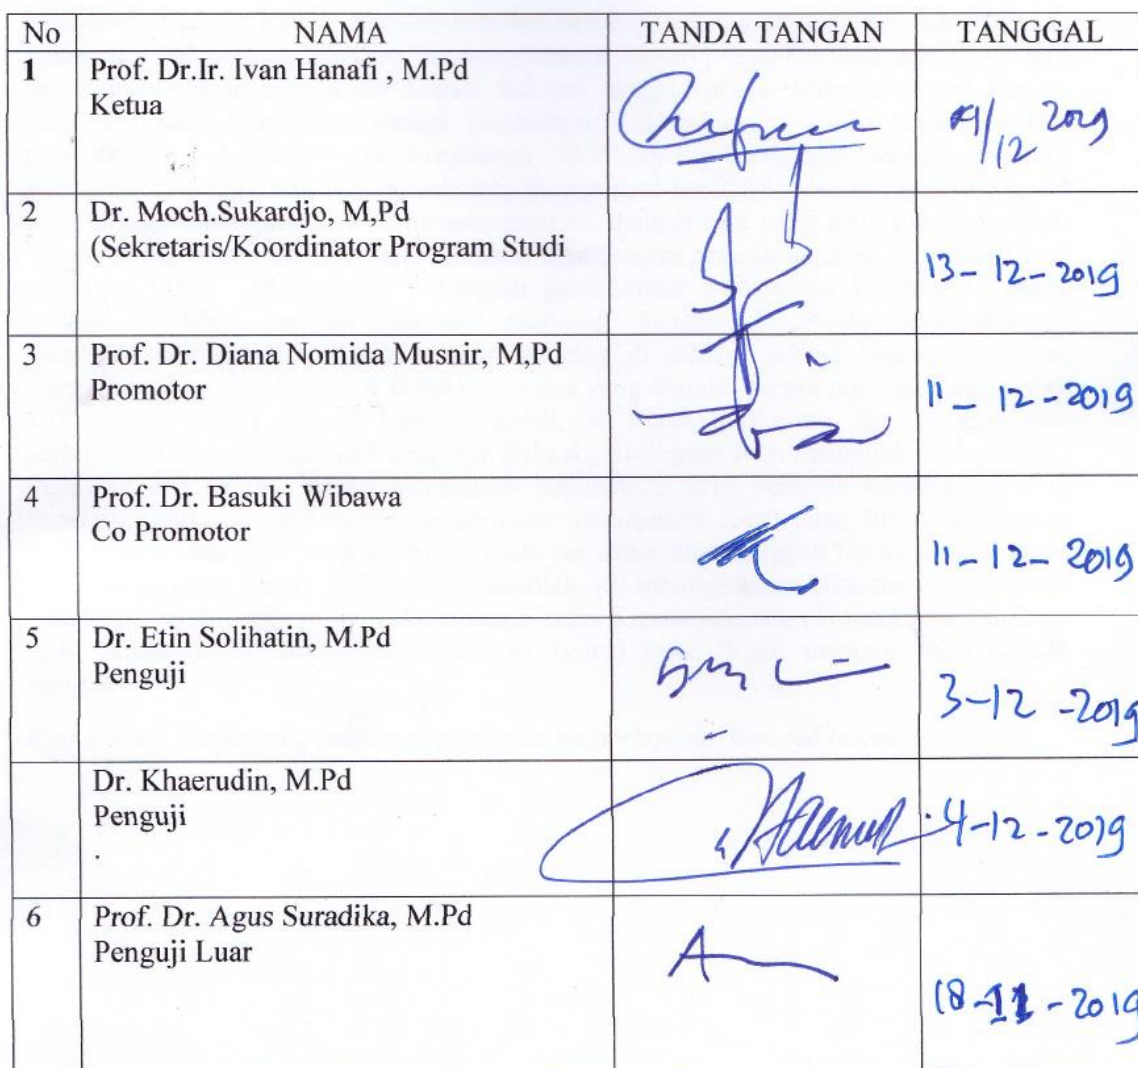 No NAMA TANDA TANGAN TANGGAL
1 Prof. Dr.Ir. Ivan Hanafi , M.Pd
Ketua
/12 2019
2 Dr. Moch.Sukardjo, M,Pd
(Sekretaris/Koordinator Program Studi
13-12-2019
3 Prof. Dr. Diana Nomida Musnir, M,Pd
Promotor
11-12-2019
4 Prof. Dr. Basuki Wibawa
Co Promotor
11-12-2019
5 Dr. Etin Solihatin, M.Pd
Penguji
3-12-2019
Dr. Khaerudin, M.Pd
Penguji
4-12-2019
6 Prof. Dr. Agus Suradika, M.Pd
Penguji Luar
18-11-2019